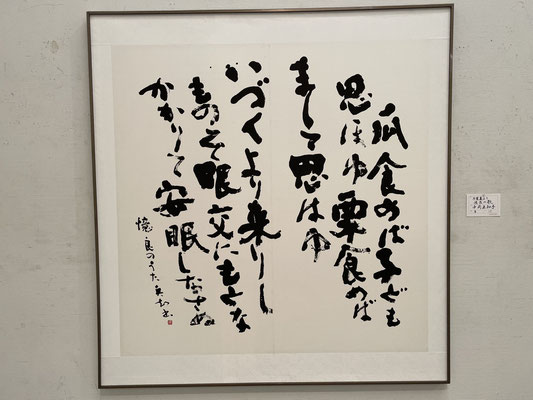 瓜食めば子ども
思ほゆ栗食めば
まして思はゆ
いづくより来りし
ものそ眼交にもとな
かかりて安眠しなさぬ
憶良のうた